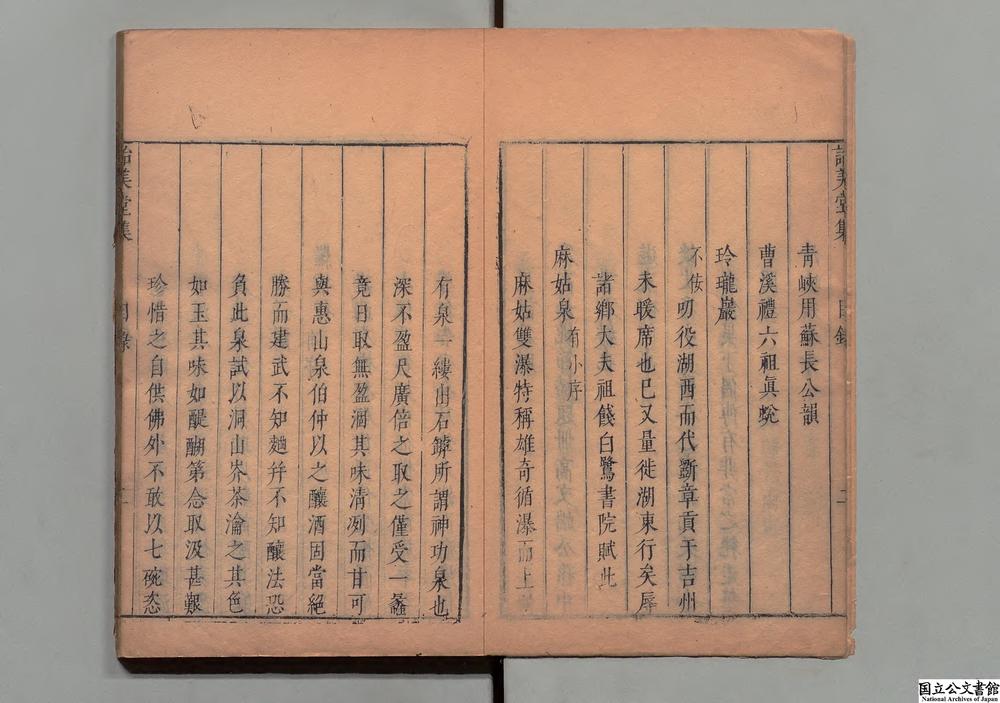 詒美堂集 目錄 二
青峽用蘇長公韻
曹溪禮六祖真蛻
玲瓏巖
不佞叨役湖西而代斲章貢于吉州
未暖席也已又量徙湖東行矣辱
諸鄉大夫祖餞白鷺書院賦此
麻姑泉 有小序
麻姑雙瀑特稱雄奇循瀑而上
有泉一縷出石罅所謂神功泉也
深不盈尺廣倍之取之僅受一蠡
竟日取無盈涸其味清冽而甘可
與惠山泉伯仲以之釀酒固當絕
勝而建武不知麯并不知釀法恐
負此泉試以洞山岕茶瀹之其色
如玉其味如醍醐第念取汲甚艱
珍惜之自供佛外不敢以七碗恣
詒美堂集 目錄 二
国立公文書館
National Archives of Japan